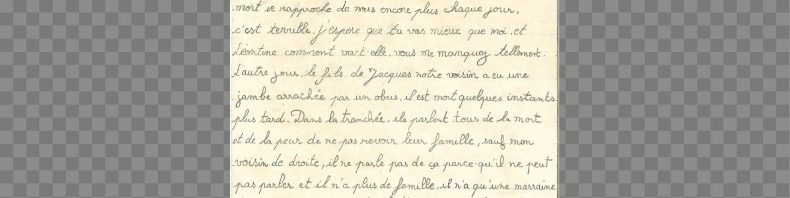 mort se rapproche de nous encore plus chaque jour,
c'est terrible, j'espère que tu vas mieux que moi, et
Léontine comment va-t-elle, vous me manquez tellement.
L'autre jour, le fils de Jacques notre voisin a eu une
jambe arrachée par un obus, il est mort quelques instants
plus tard. Dans la tranchée, ils parlent tous de la mort
et de la peur de ne pas revoir leur famille, sauf mon
voisin de droite, il ne parle pas de ça parce qu'il ne peut
pas parler et il n'a plus de famille, il n'a qu'une marraine